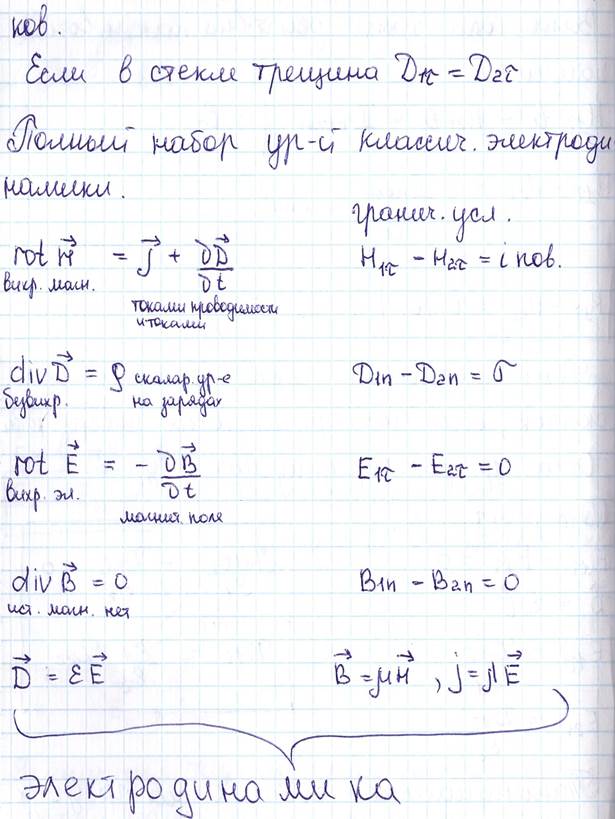 ков.
Если в стекле трещина D₁τ = D₂τ
Полный набор ур-й классич. электроди
намики.
гранич. усл.
rot H⃗ = j⃗ + ∂D⃗/∂t
H₁τ - H₂τ = i пов.
вихр. магн.
токами проводимости
и токами
div D⃗ = ρ скаляр. ур-е
D₁n - D₂n = σ
безвихр. на зарядах
rot E⃗ = - ∂B⃗/∂t
E₁τ - E₂τ = 0
вихр. эл.
магнит. поле
div B⃗ = 0
B₁n - B₂n = 0
ист. магн. нет
D⃗ = εE⃗
B⃗ = μH⃗, j = λE⃗
электродинамика